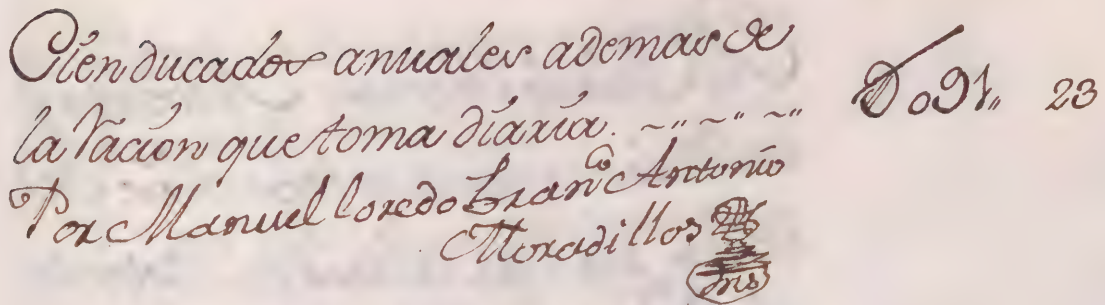 Cien ducados anuales ademas de
la racion que toma diaria. ~ " ~ " ~ " Do91,, 23
Por Manuel loredo Fran.co Antonio
Moradillos